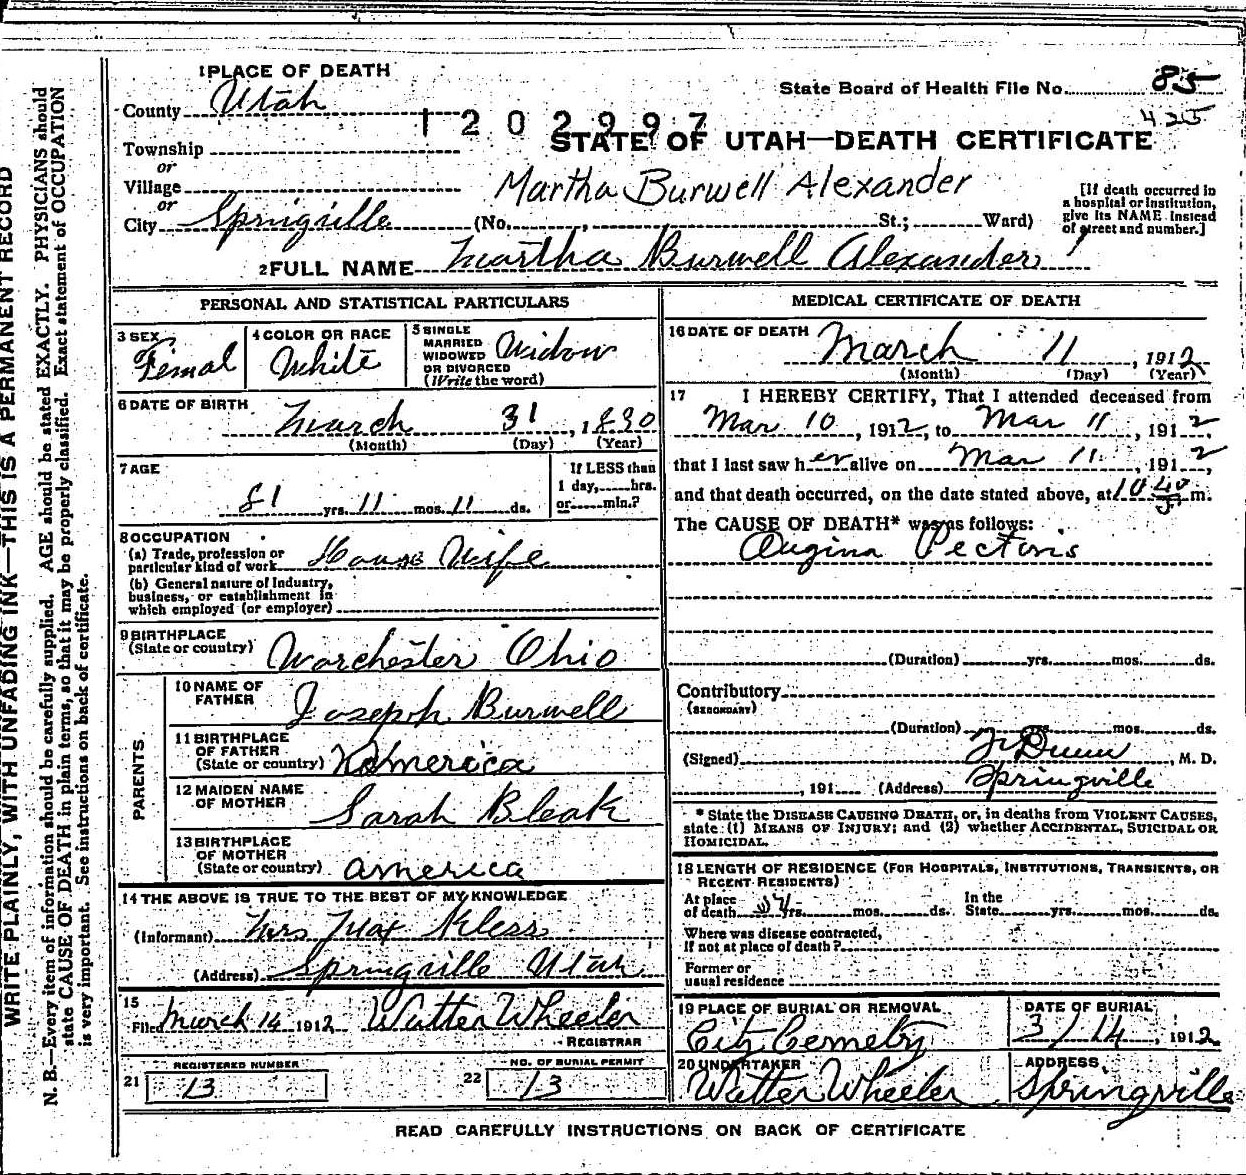 1 PLACE OF DEATH
County Utah
State Board of Health File No. 85
425
1202997
Township
STATE OF UTAH—DEATH CERTIFICATE
or
Village
Martha Burwell Alexander
or
City Springville (No. , St.; Ward)
[If death occurred in a hospital or institution, give its NAME instead of street and number.]
2 FULL NAME Martha Burwell Alexander
PERSONAL AND STATISTICAL PARTICULARS
3 SEX
Femal
4 COLOR OR RACE
White
5 SINGLE
MARRIED
WIDOWED
OR DIVORCED
(Write the word)
Widow
6 DATE OF BIRTH
March 31, 1830
(Month) (Day) (Year)
7 AGE
81 yrs. 11 mos. 11 ds.
If LESS than
1 day, hrs.
or min.?
8 OCCUPATION
(a) Trade, profession or
particular kind of work House Wife
(b) General nature of Industry,
business, or establishment in
which employed (or employer)
9 BIRTHPLACE
(State or country) Worchester Ohio
PARENTS
10 NAME OF
FATHER Joseph Burwell
11 BIRTHPLACE
OF FATHER
(State or country) America
12 MAIDEN NAME
OF MOTHER Sarah Bleak
13 BIRTHPLACE
OF MOTHER
(State or country) America
14 THE ABOVE IS TRUE TO THE BEST OF MY KNOWLEDGE
(Informant) Mrs
(Address) Springville Utah
15
Filed March 14 1912 Walter Wheeler
REGISTRAR
REGISTERED NUMBER
21 13
NO. OF BURIAL PERMIT
22 13
MEDICAL CERTIFICATE OF DEATH
16 DATE OF DEATH
March 11, 1912
(Month) (Day) (Year)
17 I HEREBY CERTIFY, That I attended deceased from
Mar 10, 1912, to Mar 11, 1912,
that I last saw her alive on Mar 11, 1912,
and that death occurred, on the date stated above, at 10 40 m.
The CAUSE OF DEATH* was as follows:
Angina Pectoris
(Duration) yrs. mos. ds.
Contributory
(SECONDARY)
(Duration) yrs. mos. ds.
(Signed) Dunn, M. D.
, 191 (Address) Springville
* State the DISEASE CAUSING DEATH, or, in deaths from VIOLENT CAUSES,
state (1) MEANS OF INJURY; and (2) whether ACCIDENTAL, SUICIDAL OR
HOMICIDAL.
18 LENGTH OF RESIDENCE (FOR HOSPITALS, INSTITUTIONS, TRANSIENTS, OR
RECENT RESIDENTS)
At place
of death yrs. mos. ds.
In the
State yrs. mos. ds.
Where was disease contracted,
if not at place of death?
Former or
usual residence
19 PLACE OF BURIAL OR REMOVAL
City Cemetry
DATE OF BURIAL
3/14, 1912
20 UNDERTAKER
Walter Wheeler
ADDRESS
Springville
READ CAREFULLY INSTRUCTIONS ON BACK OF CERTIFICATE
WRITE PLAINLY, WITH UNFADING INK—THIS IS A PERMANENT RECORD
N. B.—Every item of information should be carefully supplied. AGE should be stated EXACTLY. PHYSICIANS should
state CAUSE OF DEATH in plain terms, so that it may be properly classified. Exact statement of OCCUPATION
is very important. See instructions on back of certificate.